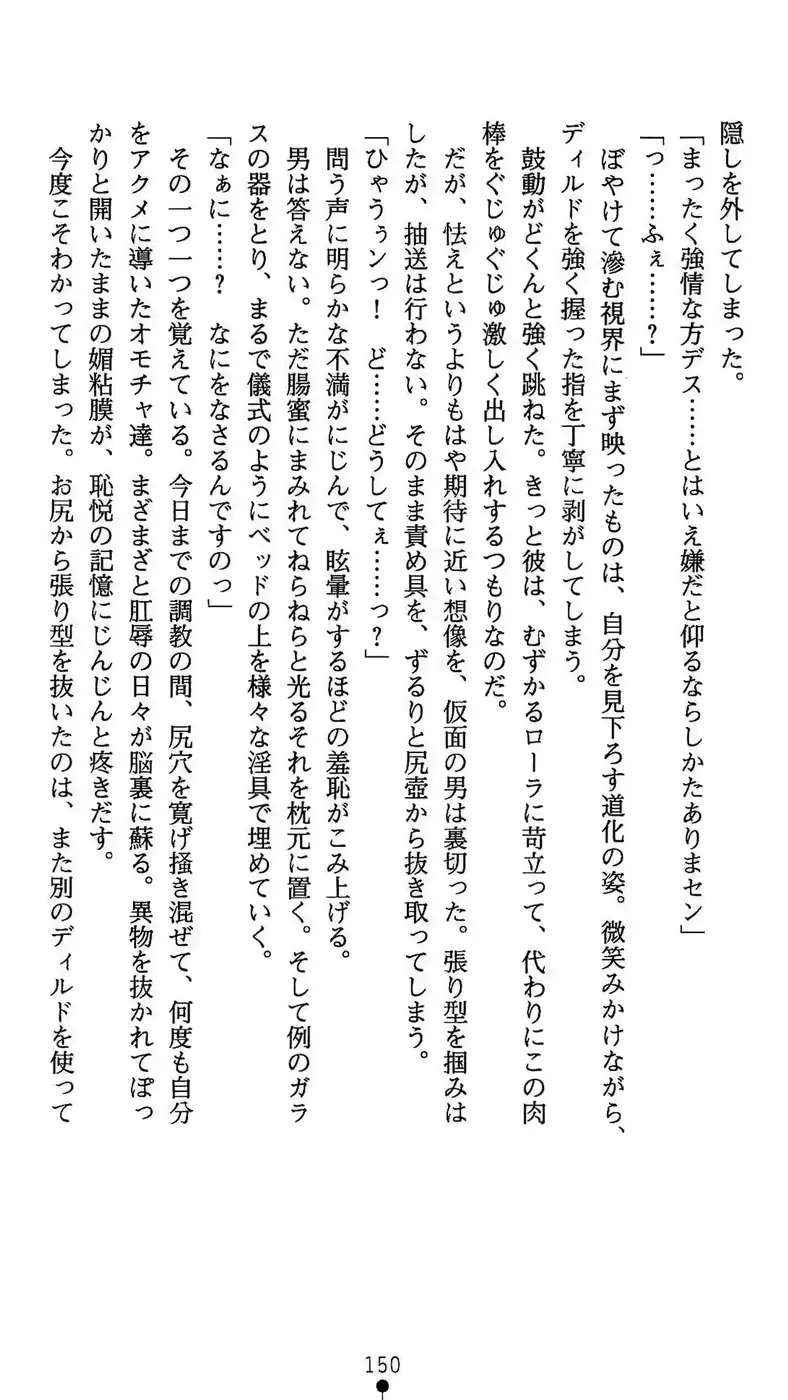 隠しを外してしまった。
「まったく強情な方デス……とはいえ嫌だと仰るならしかたありまセン」
「っ……ふぇ……？」
ぼやけて滲む視界にまず映ったものは、自分を見下ろす道化の姿。微笑みかけながら、
ディルドを強く握った指を丁寧に剥がしてしまう。
鼓動がどくんと強く跳ねた。きっと彼は、むずかるローラに苛立って、代わりにこの肉
棒をぐじゅぐじゅ激しく出し入れするつもりなのだ。
だが、怯えというよりもはや期待に近い想像を、仮面の男は裏切った。張り型を掴みは
したが、抽送は行わない。そのまま責め具を、ずるりと尻壺から抜き取ってしまう。
「ひゃうぅンっ！　ど……どうしてぇ……っ？」
問う声に明らかな不満がにじんで、眩暈がするほどの羞恥がこみ上げる。
男は答えない。ただ腸蜜にまみれてねらねらと光るそれを枕元に置く。そして例のガラ
スの器をとり、まるで儀式のようにベッドの上を様々な淫具で埋めていく。
「なぁに……？　なにをなさるんですのっ」
その一つ一つを覚えている。今日までの調教の間、尻穴を寛げ掻き混ぜて、何度も自分
をアクメに導いたオモチャ達。まざまざと肛辱の日々が脳裏に蘇る。異物を抜かれてぽっ
かりと開いたままの媚粘膜が、恥悦の記憶にじんじんと疼きだす。
今度こそわかってしまった。お尻から張り型を抜いたのは、また別のディルドを使って
150